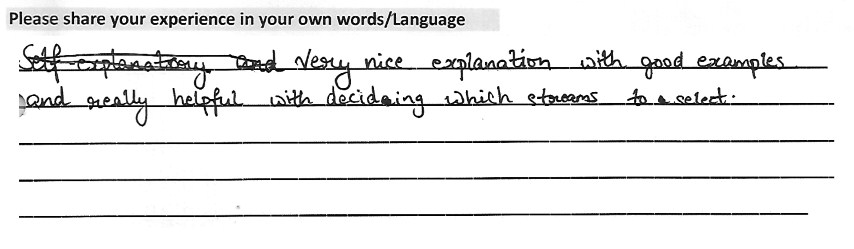 Please share your experience in your own words/Language
Self-explanatory and Very nice explanation with good examples
and really helpful with decideing which streams to select.